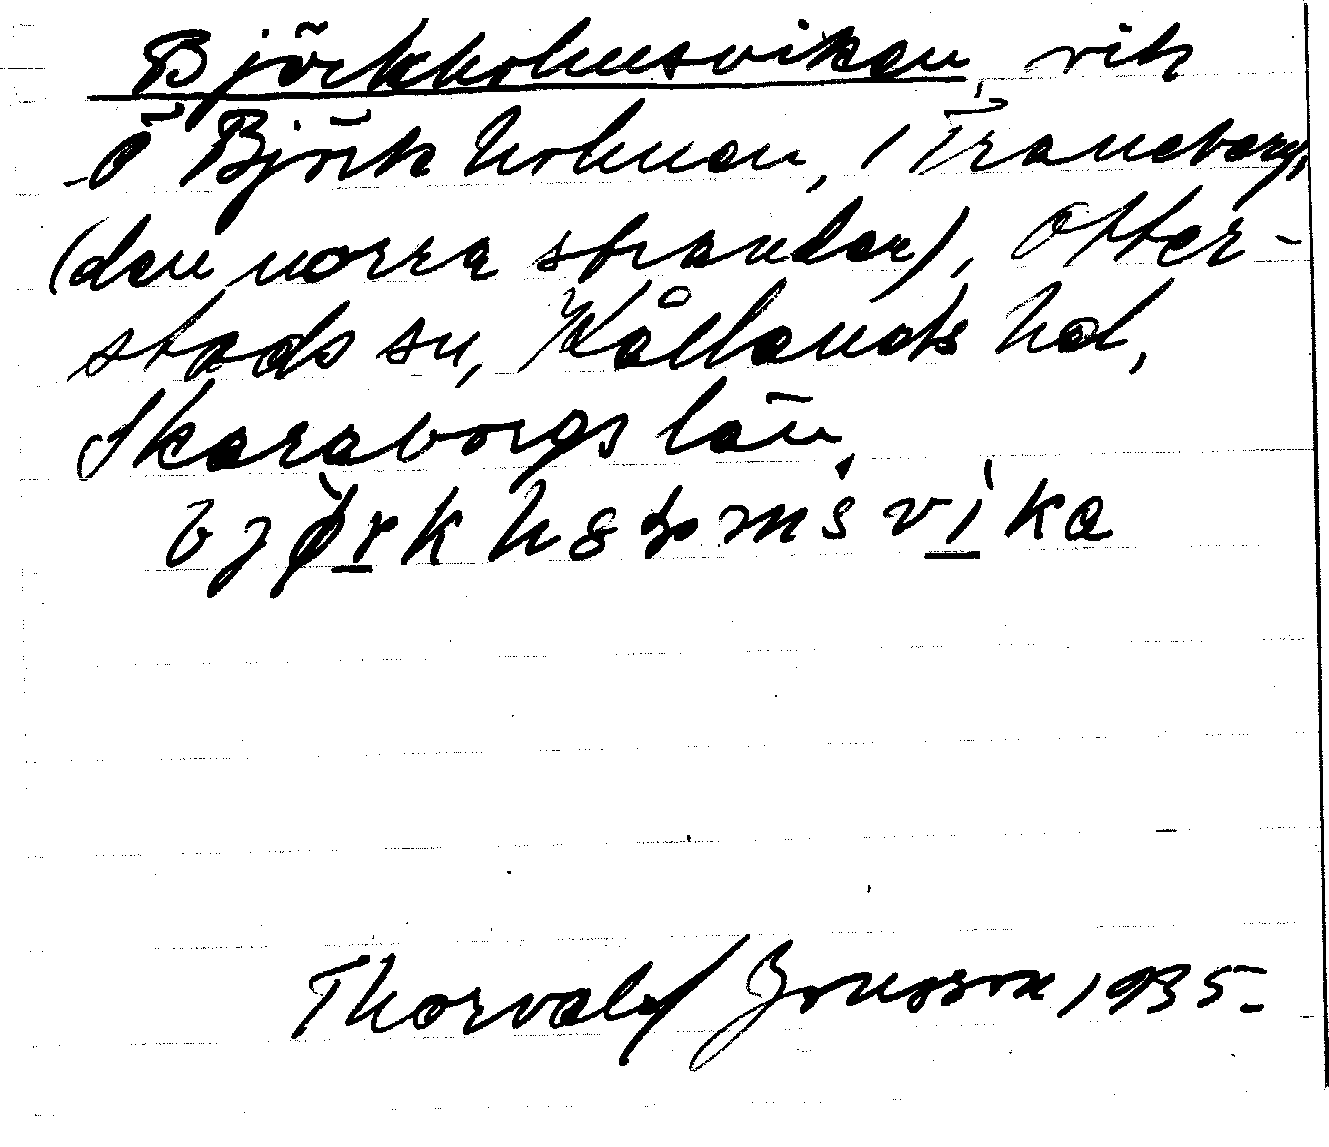 Björkholmsvikan vik
Ö Björkholmen, i Traneberg,
(den norra stranden), Otter-
stads sn, Kållands hd,
Skaraborgs län.
bjørkhɷmsvika
Thorvald Jonsson 1935.